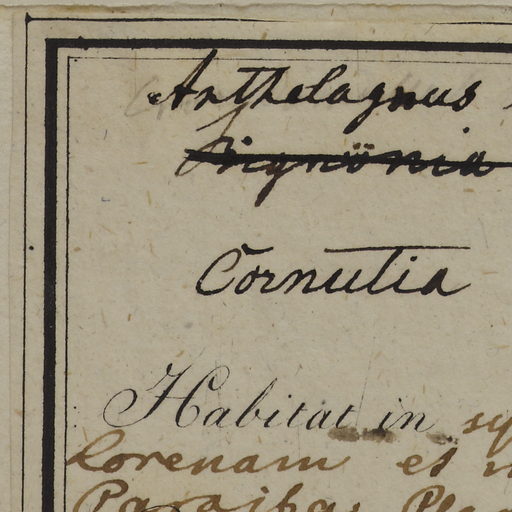 Anthelagnus
Bignonia
Cornutia
Habitat in
Lorenam et
Paraiba,